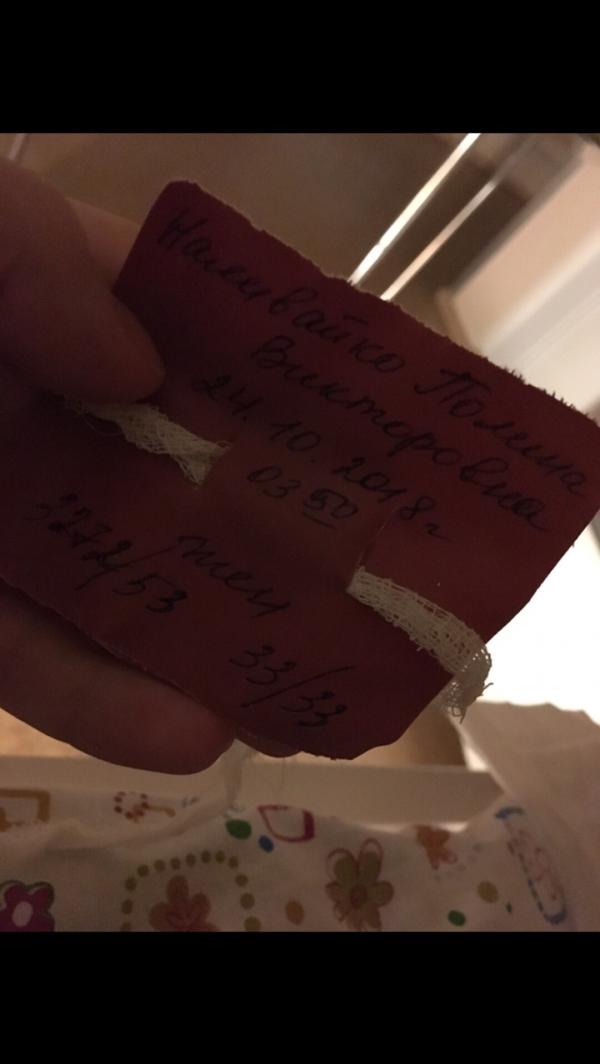 Наливайко Полина
Викторовна
24.10.2018г
03 50
жен
3272/53
33/33